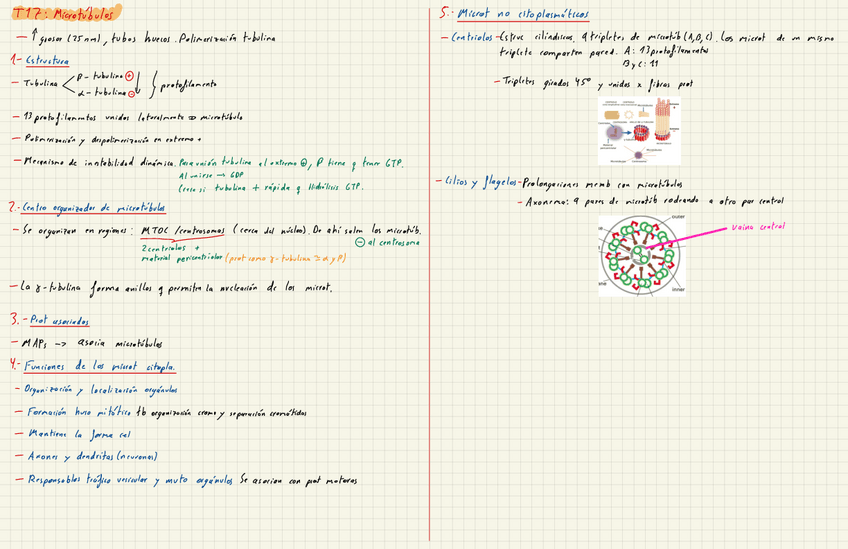 T17: Microtúbulos
- ↑ grosor (25nm), tubos huecos. Polimerización tubulina
1- Estructura
- Tubulina
β- tubulina ⊕
α- tubulina ⊖
} protofilamento
- 13 protofilamentos unidos lateralmente ⇒ microtúbulo
- Polimerización y despolimerización en extremo +
- Mecanismo de inestabilidad dinámica. Para unión tubulina al extremo ⊕, β tiene q tener GTP.
Al unirse → GDP
Crece si tubulina + rápida q Hidólisis GTP.
2.- Centro organizador de microtúbulos
- Se organizan en regiones: MTOC /centrosomas (cerca del núcleo). De ahí salen los microtúb.
⊖ al centrosoma
2 centriolos +
material pericentriolar (prot como γ-tubulina ≃ α y β)
- La γ-tubulina forma anillos q permiten la nucleación de los microt.
3.- Prot asociadas
- MAPs -> asocia microtúbulos
4.- Funciones de los microt citopla.
- Organización y localización orgánulos
- Formación huso mitótico tb organización cromo y separación cromátidas
- Mantiene la forma cel
- Axones y dendritas (neuronas)
- Responsables tráfico vesicular y mvto orgánulos Se asocian con prot motoras
5.- Microt no citoplasmáticos
- Centriolos - Estruc cilíndricas. 9 tripletes de microtúb (A,B,C). Los microt de un mismo
triplete comparten pared. A: 13 protofilamentos
B y C: 11
- Tripletes girados 45º y unidos x fibras prot
- Cilios y flagelos - Prolongaciones memb con microtúbulos
- Axonema: 9 pares de microtúb rodeando a otro par central
outer
vaina central
inner